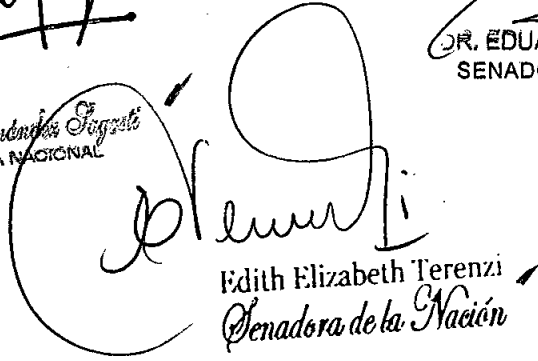 DR. EDUA
SENADO
NACIONAL
Edith Elizabeth Terenzi
Senadora de la Nación